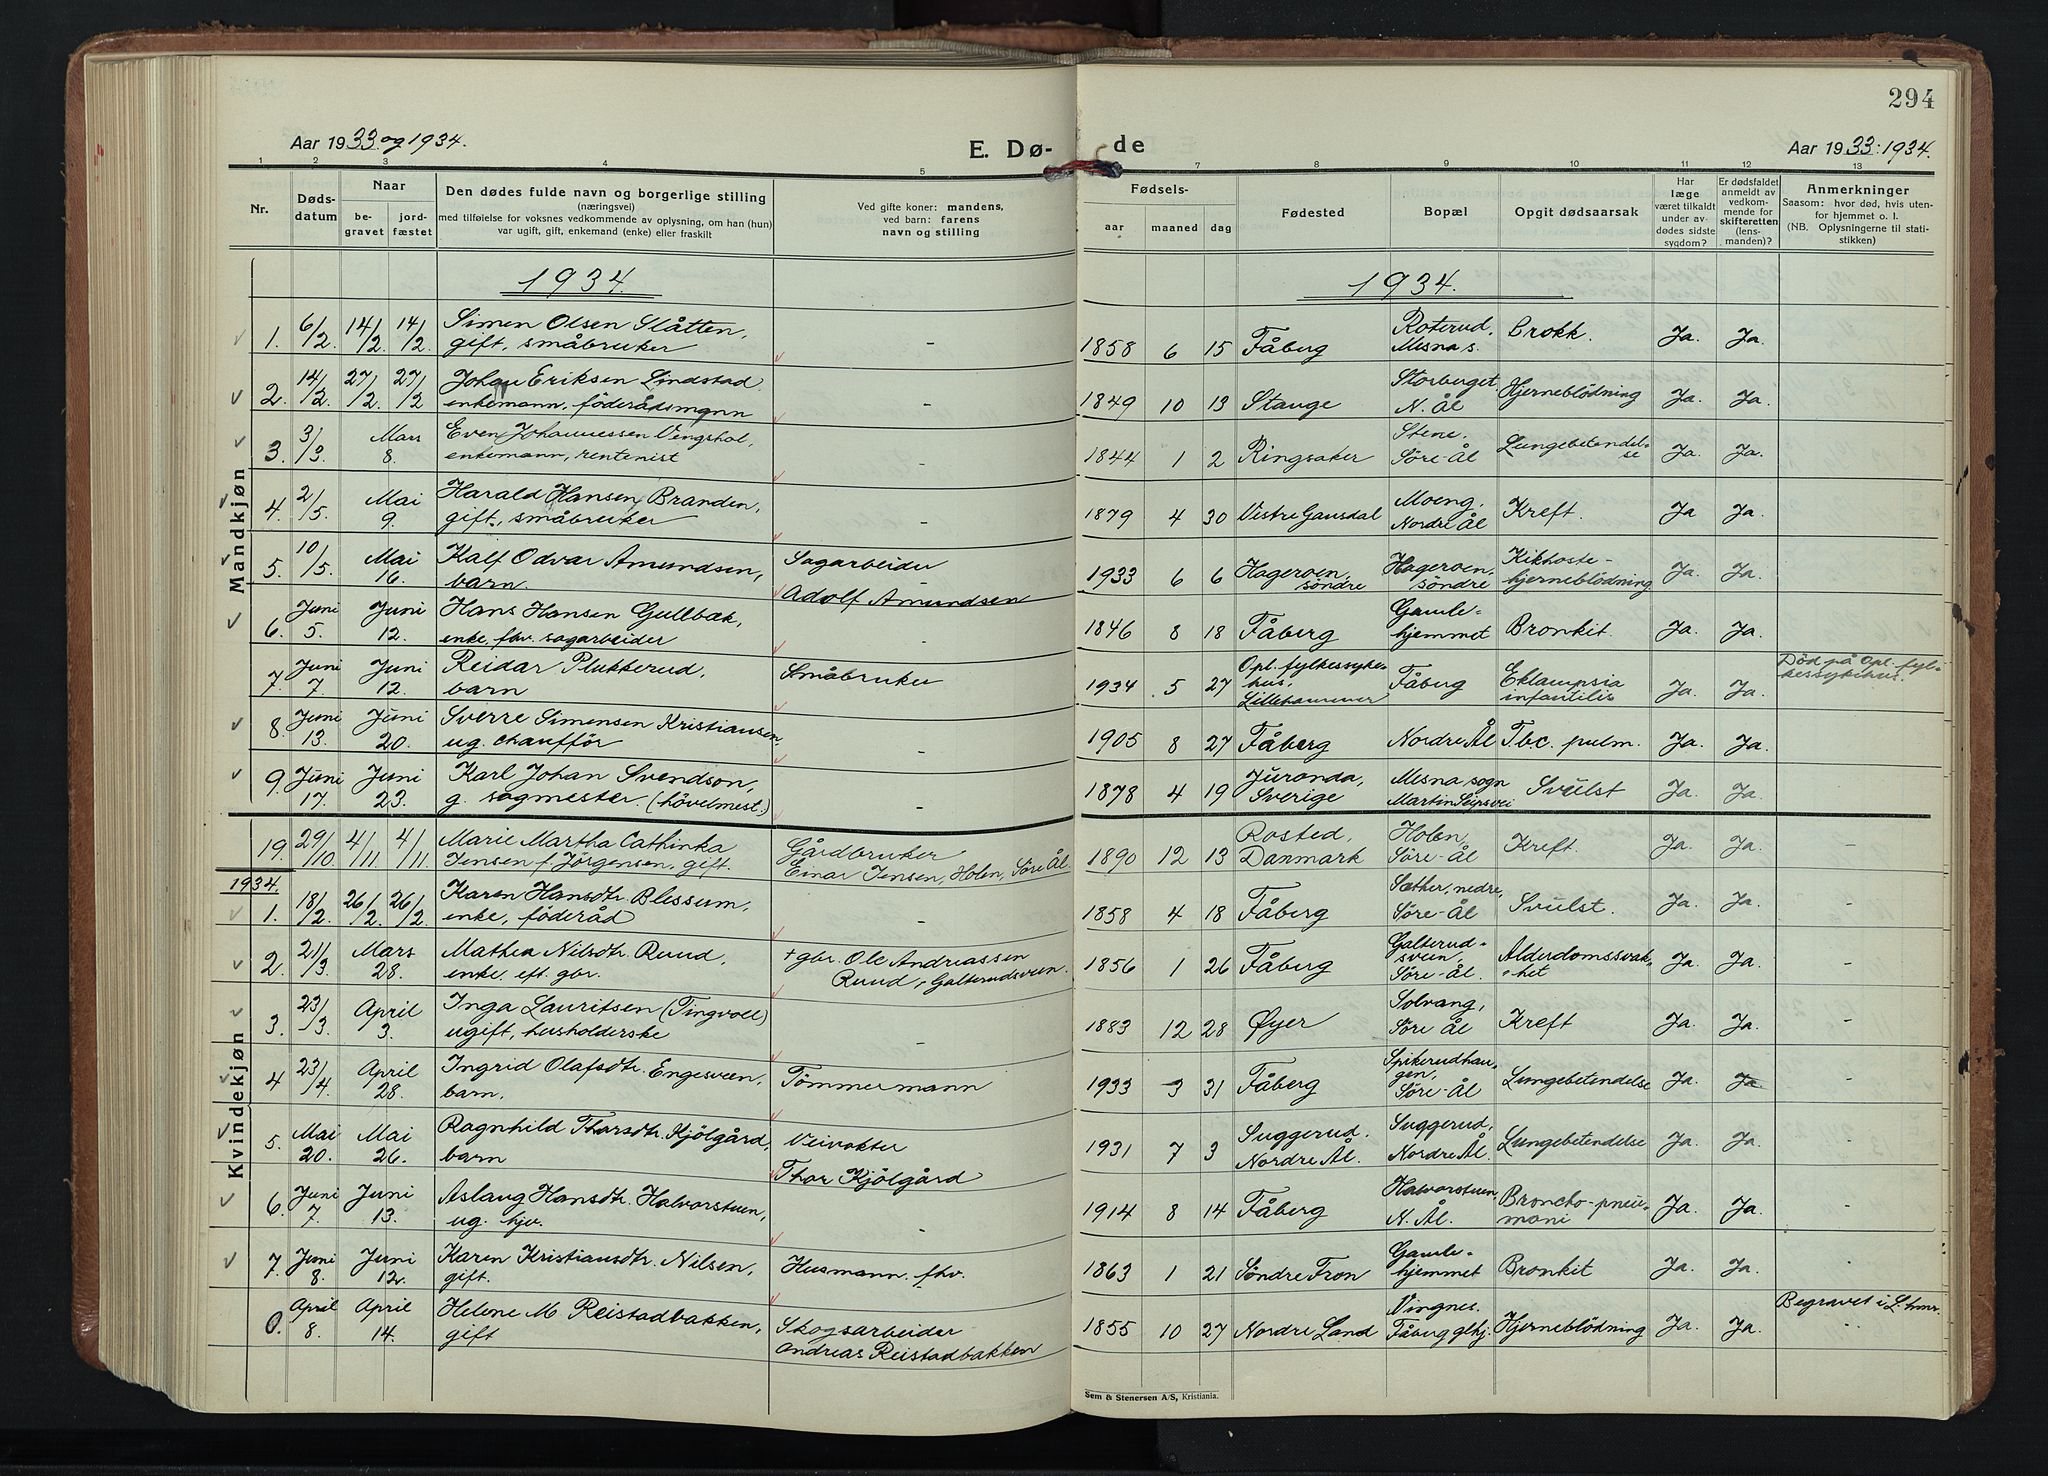 294
Aar 1933 og 1934.
E. Dø-
de
Aar 1933: 1934.
1 2 3 4 5 7 8 9 10 11 12 13
Nr.
Døds-
datum
Naar
be-
gravet
jord-
fæstet
Den dødes fulde navn og borgerlige stilling
(næringsvei)
med tilføielse for voksnes vedkommende av oplysning, om han (hun)
var ugift, gift, enkemand (enke) eller fraskilt
Ved gifte koner: mandens,
ved barn: farens
navn og stilling
Fødsels-
aar maaned dag
Fødested
Bopæl
Opgit dødsaarsak
Har
læge
været tilkaldt
under av-
dødes sidste
sygdom?
Er dødsfaldet
anmeldt av
vedkom-
mende for
skifteretten
(lens-
manden)?
Anmerkninger
Saasom: hvor død, hvis uten-
for hjemmet o. l.
(NB. Oplysningerne til stati-
stikken)
Mandkjøn
1934. 1934.
1. 6/2 14/2 14/2 Simen Olsen Slåtten,
gift, småbruker - 1858 6 15 Fåberg Roterud, Mesna s. Brokk. Ja. Ja.
2. 14/2 27/2 27/2 Johan Eriksen Lindstad
enkemann, föderådsmann 1849 10 13 Stange Storberget N. Ål Hjerneblödning Ja. Ja.
3. 3/3 Mars 8. Even Johannessen Vingshol,
enkemann, rentenist - 1844 1 2 Ringsaker Stene, Söre-Ål Lungebetendel-se Ja Ja.
4. 2/5 Mai 9. Harald Hansen Branden,
gift, småbruker - 1879 4 30 Vestre Gausdal Moeng, Nordre Ål Kreft. Ja Ja.
5. 10/5 Mai 16. Kalf Odvar Amundsen,
barn. Sagarbeider
Adolf Amundsen 1933 6 6 Hageroen, söndre Hageroen, söndre Kikhoste-hjerneblödning Ja. Ja.
6. Juni 5. Juni 12. Hans Hansen Gullbæk,
enke, fhv. sagarbeider - 1846 8 18 Fåberg Gamle-hjemmet Bronkit. Ja. Ja.
7. Juni 7. Juni 12. Reidar Plukkerud,
barn Småbruker 1934 5 27 Opl. fylkessyke-hus, Lillehammer Fåberg Eklampsia infantilis Ja. Ja. Död på Opl. fyl-kessykehus.
8. Juni 13. Juni 20. Sverre Simensen Kristiansen,
ug. chaufför - 1905 8 27 Fåberg Nordre Ål T.b.c. pulm. Ja. Ja.
9. Juni 17. Juni 23. Karl Johan Svendson,
g. sagmester. (hövelmest.) - 1878 4 19 Sverige Mesna sogn Martin Seipsvei Svulst Ja. Ja.
Kvindekjøn
19. 29/10. 4/11. 4/11. Marie Martha Cathinka
Jensen f. Jörgensen, gift. Gårdbruker
Einar Jensen, Holen, Söre Ål. 1890 12 13 Rosted, Danmark Holen, Söre-Ål Kreft. Ja. Ja. -
1934.
1. 18/2 26/2 26/2 Karen Hansdtr. Blessum,
enke, föderåd - 1858 4 18 Fåberg Sæther, nedre, Söre-Ål Svulst. Ja. Ja. -
2. 21/3 Mars 28. Mathea Nilsdtr. Ruud,
enke, eft. gbr. + gbr. Ole Andreassen
Ruud, Galterudsveen. 1856 1 26 Fåberg Galterud-sveen, Söre-Ål. Alderdomssvak-het Ja. Ja. -
3. 23/3 April 3. Inga Lauritsen (Tingvoll)
ugift, husholderske - 1883 12 28 Øyer Solvang, Söre Ål Kreft Ja. Ja. -
4 23/4 April 28. Ingrid Olafsdtr. Engesveen,
barn. Tömmermann 1933 3 31 Fåberg Spikerudhau-gen, Söre-Ål Lungebetendelse Ja. Ja -
5. Mai 20. Mai 26. Ragnhild Thorsdtr. Kjölgård,
barn Veivokter
Thor Kjölgård 1931 7 3 Suggerud. Nordre Ål. Suggerud, Nordre Ål. Lungebetendelse Ja. Ja. -
6. Juni 7. Juni 13. Aslaug Hansdtr. Halvorstuen,
ug. hjv. - 1914 8 14 Fåberg Halvorstuen, N. Ål. Broncho-pneu-moni Ja. Ja. -
7. Juni 8. Juni 12. Karen Kristiansdtr. Nilsen,
gift. Husmann. fhv. 1863 1 21 Söndre Fron Gamle-hjemmet Bronkit Ja. Ja. -
0. April 8. April 14. Helene M. Reistadbakken,
gift Skogsarbeider
Andreas Reistadbakken 1855 10 27 Nordre Land Vingnes. Fåberg glhj. Hjerneblödning Ja. Ja. Begravet i L.hmr.
Sem & Stenersen A/S, Kristiania.